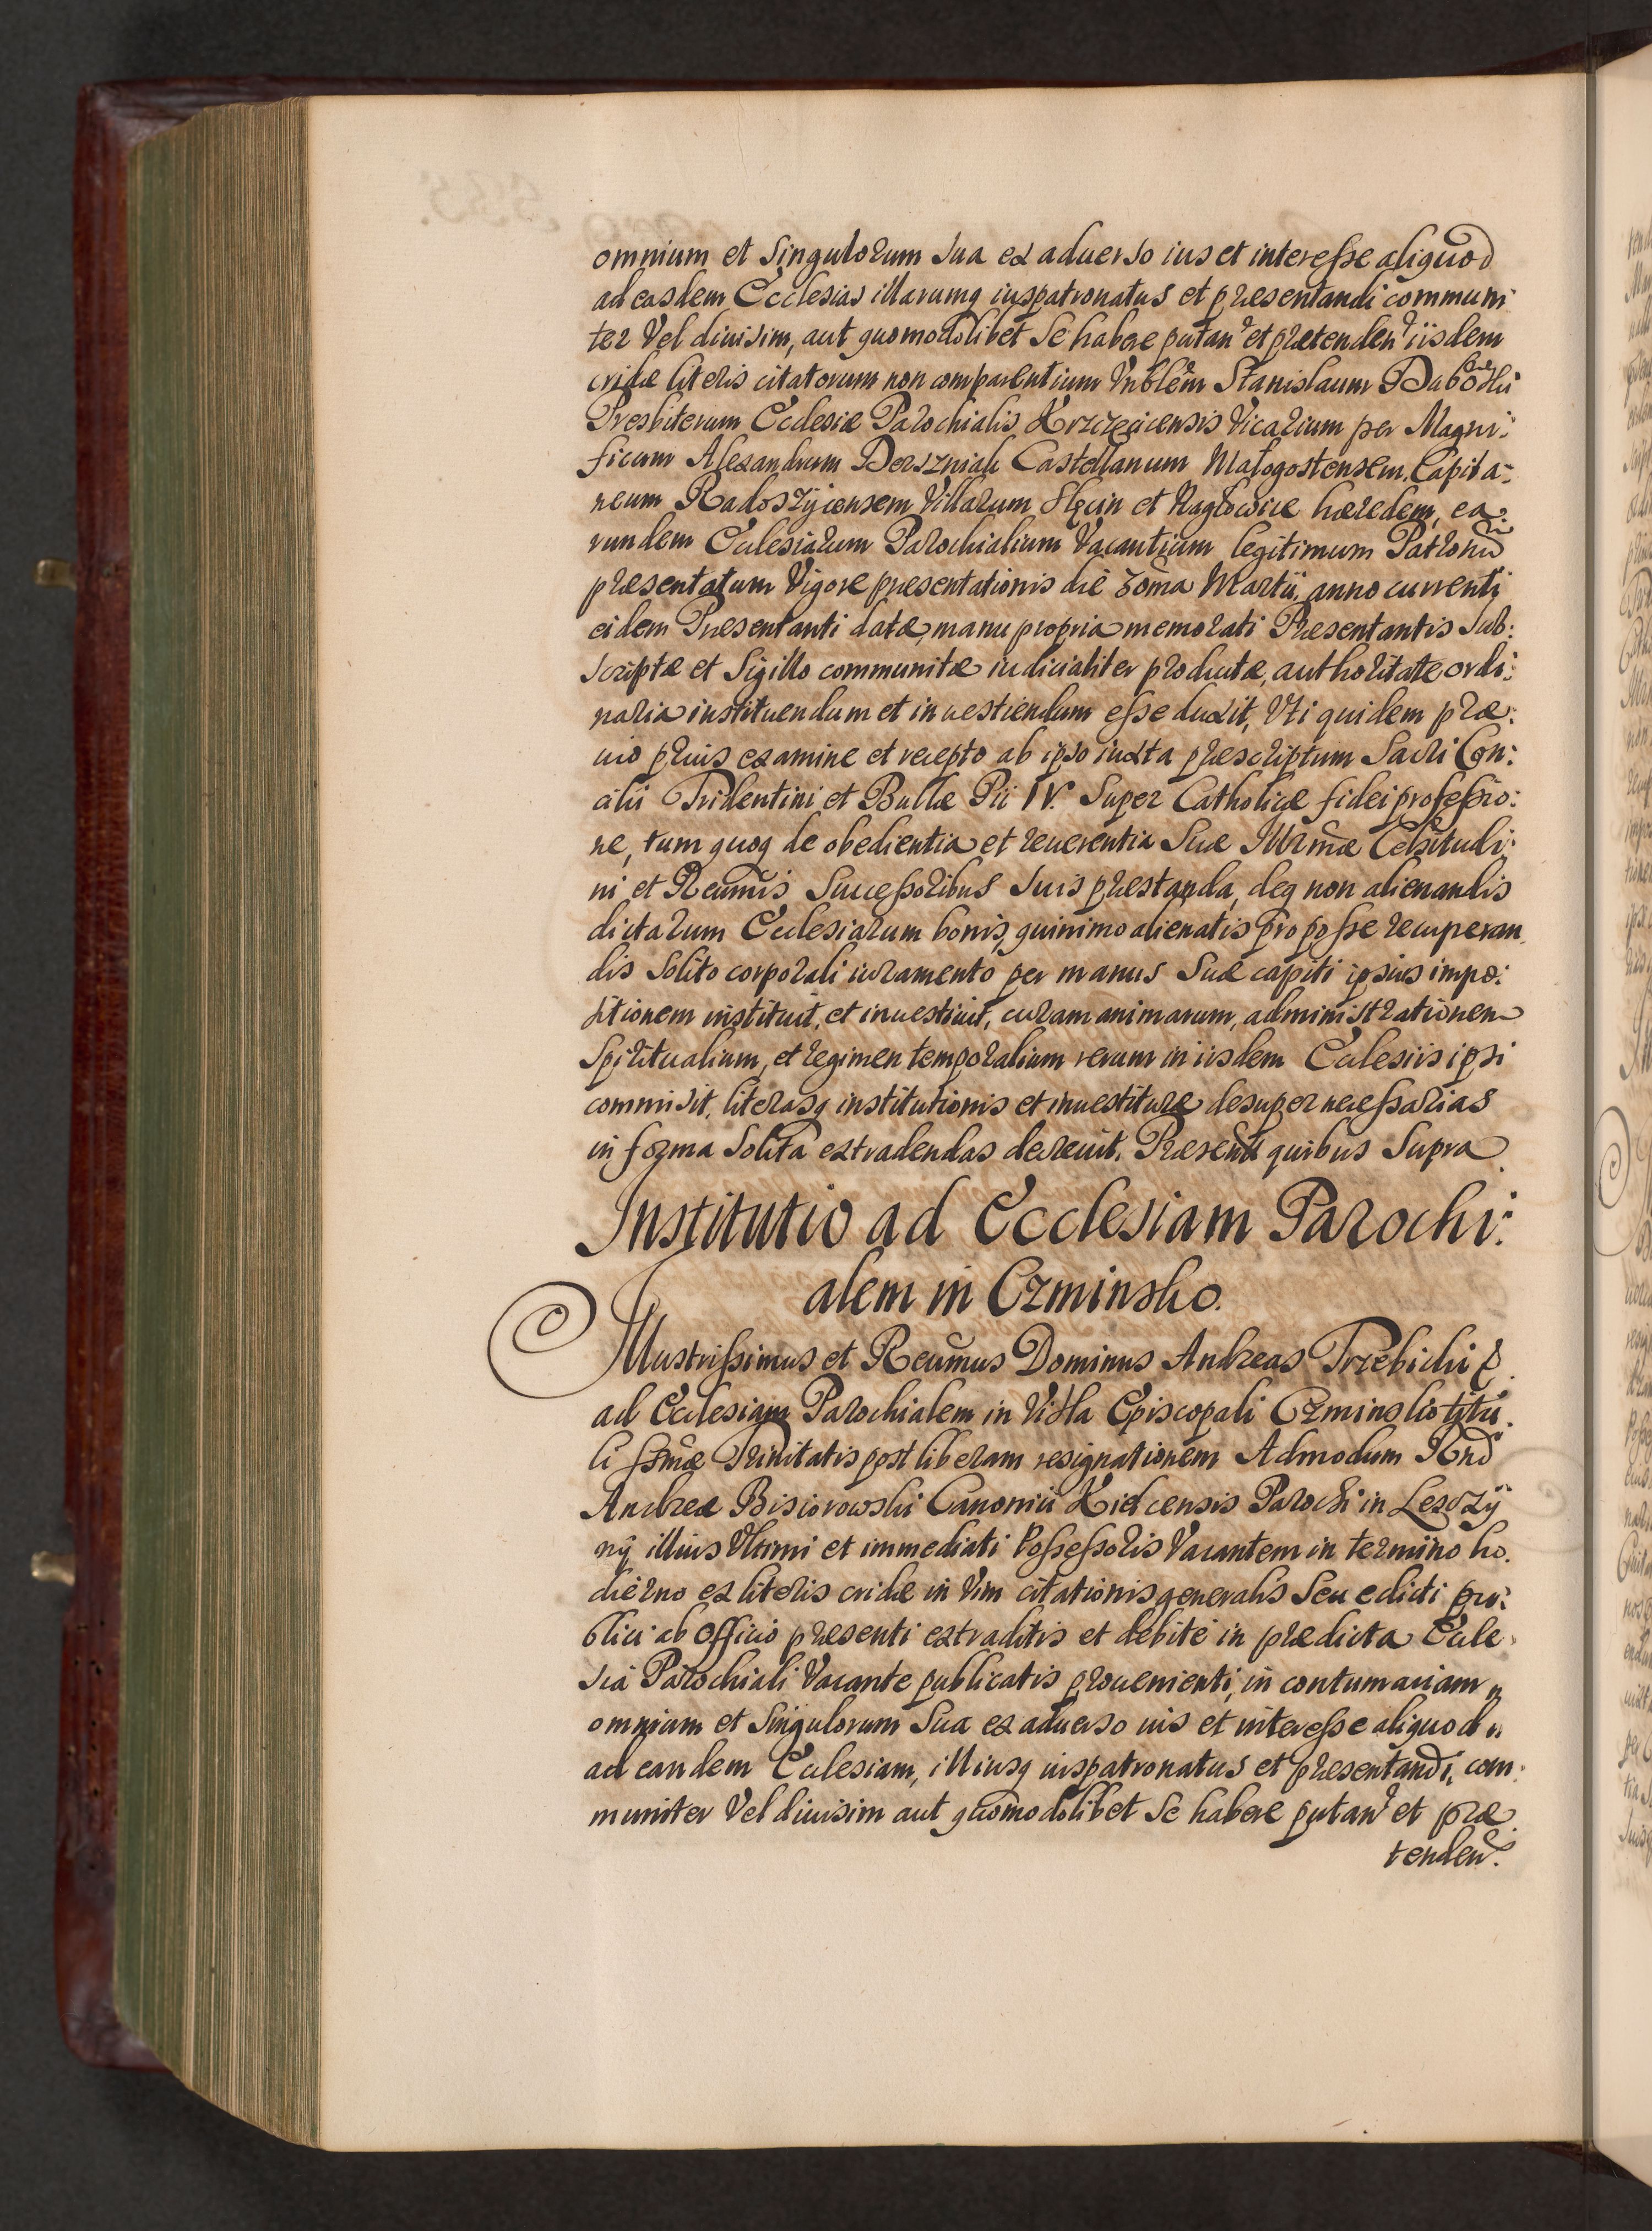 omnium et Singulorum sua ex aduerso ius et interesse aliquod
ad easdem Ecclesias illarumq iuspatronatus et præsentandi communi
ter Vel diuisim, aut quomodolibet se habere putan et prætenden iisdem
cridæ literis citatorum non comparentium Vnblem Stanislaum
Presbiterum Ecclesiæ Parochialis Krzcięcicensis Vicarium per Magni:
ficum Alexandrum Derszniak Castellanum Malogostensem, Capita:
neum Radoszÿcensem Villarum Słpcin et Nagłowice hæredem, ea:
rundem Ecclesiarum Parochialium Vacantium legitimum Patronũ
præsentatum Vigore præsentationis die 30ma Martii, anno currenti
eidem Præsentanti datæ, manu propria memorati Præsentantis sub:
scriptæ et Sigillo communitæ iudicialiter productæ, authoritate ordi:
naria instituendum et inuestiendum esse duxit, Vti quidem præ:
uio prius examine et recepto ab ipso iuxta præscriptum Sacri Con:
cilii Tridentini et Bullæ Pii IV. Super Catholicæ fidei professio:
ne, tum quoq de obedientia et reuerentia Suæ Illrmæ Celsitudi:
ni et Reumis Successoribus suis præstanda, deq non alienandis
dictarum Ecclesiarum bonis, quinimo alienatis pro posse recuperan
dis solito corporali iuramento, per manus Suæ capiti ipsius impo:
sitionem instituit, et inuestiuit, curam animarum, administrationem
Spiritualium, et regimen temporalium rerum in iisdem Ecclesiis ipsi
commisit, literasq institutionis et inuestituræ desuper necessarias
in forma solita extradendas decreuit. Præsentt quibus Supra
Institutio ad Ecclesiam Parochi:
alem in Czminsko.
Illustrissimus et Reumus Dominus Andreas Trzebicki E.
ad Ecclesiam Parochialem in Villa Episcopali Czminsko titu
li ssmæ Trinitatis post liberam resignationem Admodum Rnd
Andreæ Bisiorowski Canonici Kielcensis Parochi in Leszzÿ
nÿ illius Vltimi et immediati Possessoris Vacantem in termino ho.
dierno ex literis cridæ in Vim citationis generalis seu edicti pu:
blici ab Officio præsenti extraditis et debite in prædicta Eccle
sia Parochiali Vacante publicatis prouenienti, in contumaciam
omnium et Singulorum Sua ex aduerso ius et interesse aliquod
ad eandem Ecclesiam, illiusq iuspatronatus et præsentandi, com:
muniter Vel diuisim aut quomodolibet se habere putan et præ
tenden.